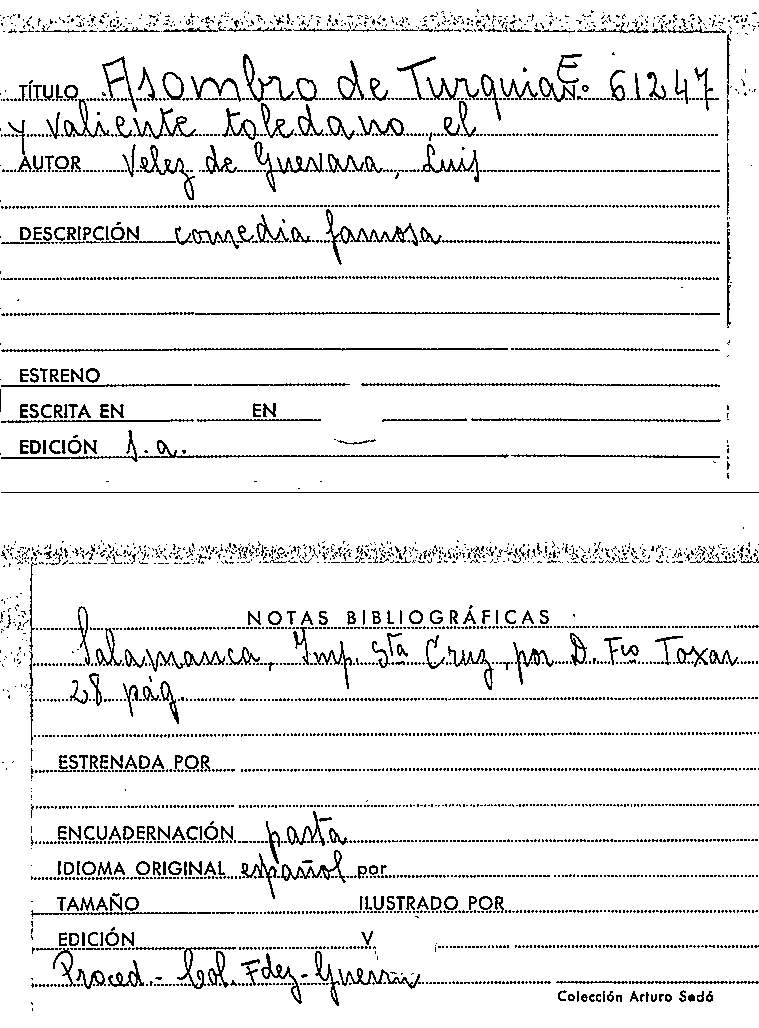 TÍTULO Asombro de Turquia E N.º 61247
y valiente toledano, el
AUTOR Velez de Guevara, Luis
DESCRIPCIÓN comedia famosa
ESTRENO
ESCRITA EN EN
EDICIÓN s.a.
NOTAS BIBLIOGRÁFICAS
Salamanca, Imp. Sta Cruz, por D. Fco Toxar
28 pág.
ESTRENADA POR
ENCUADERNACIÓN pasta
IDIOMA ORIGINAL español por
TAMAÑO ILUSTRADO POR
EDICIÓN V
Proced.- Col. Fdez-Guerra
Colección Arturo Sedó